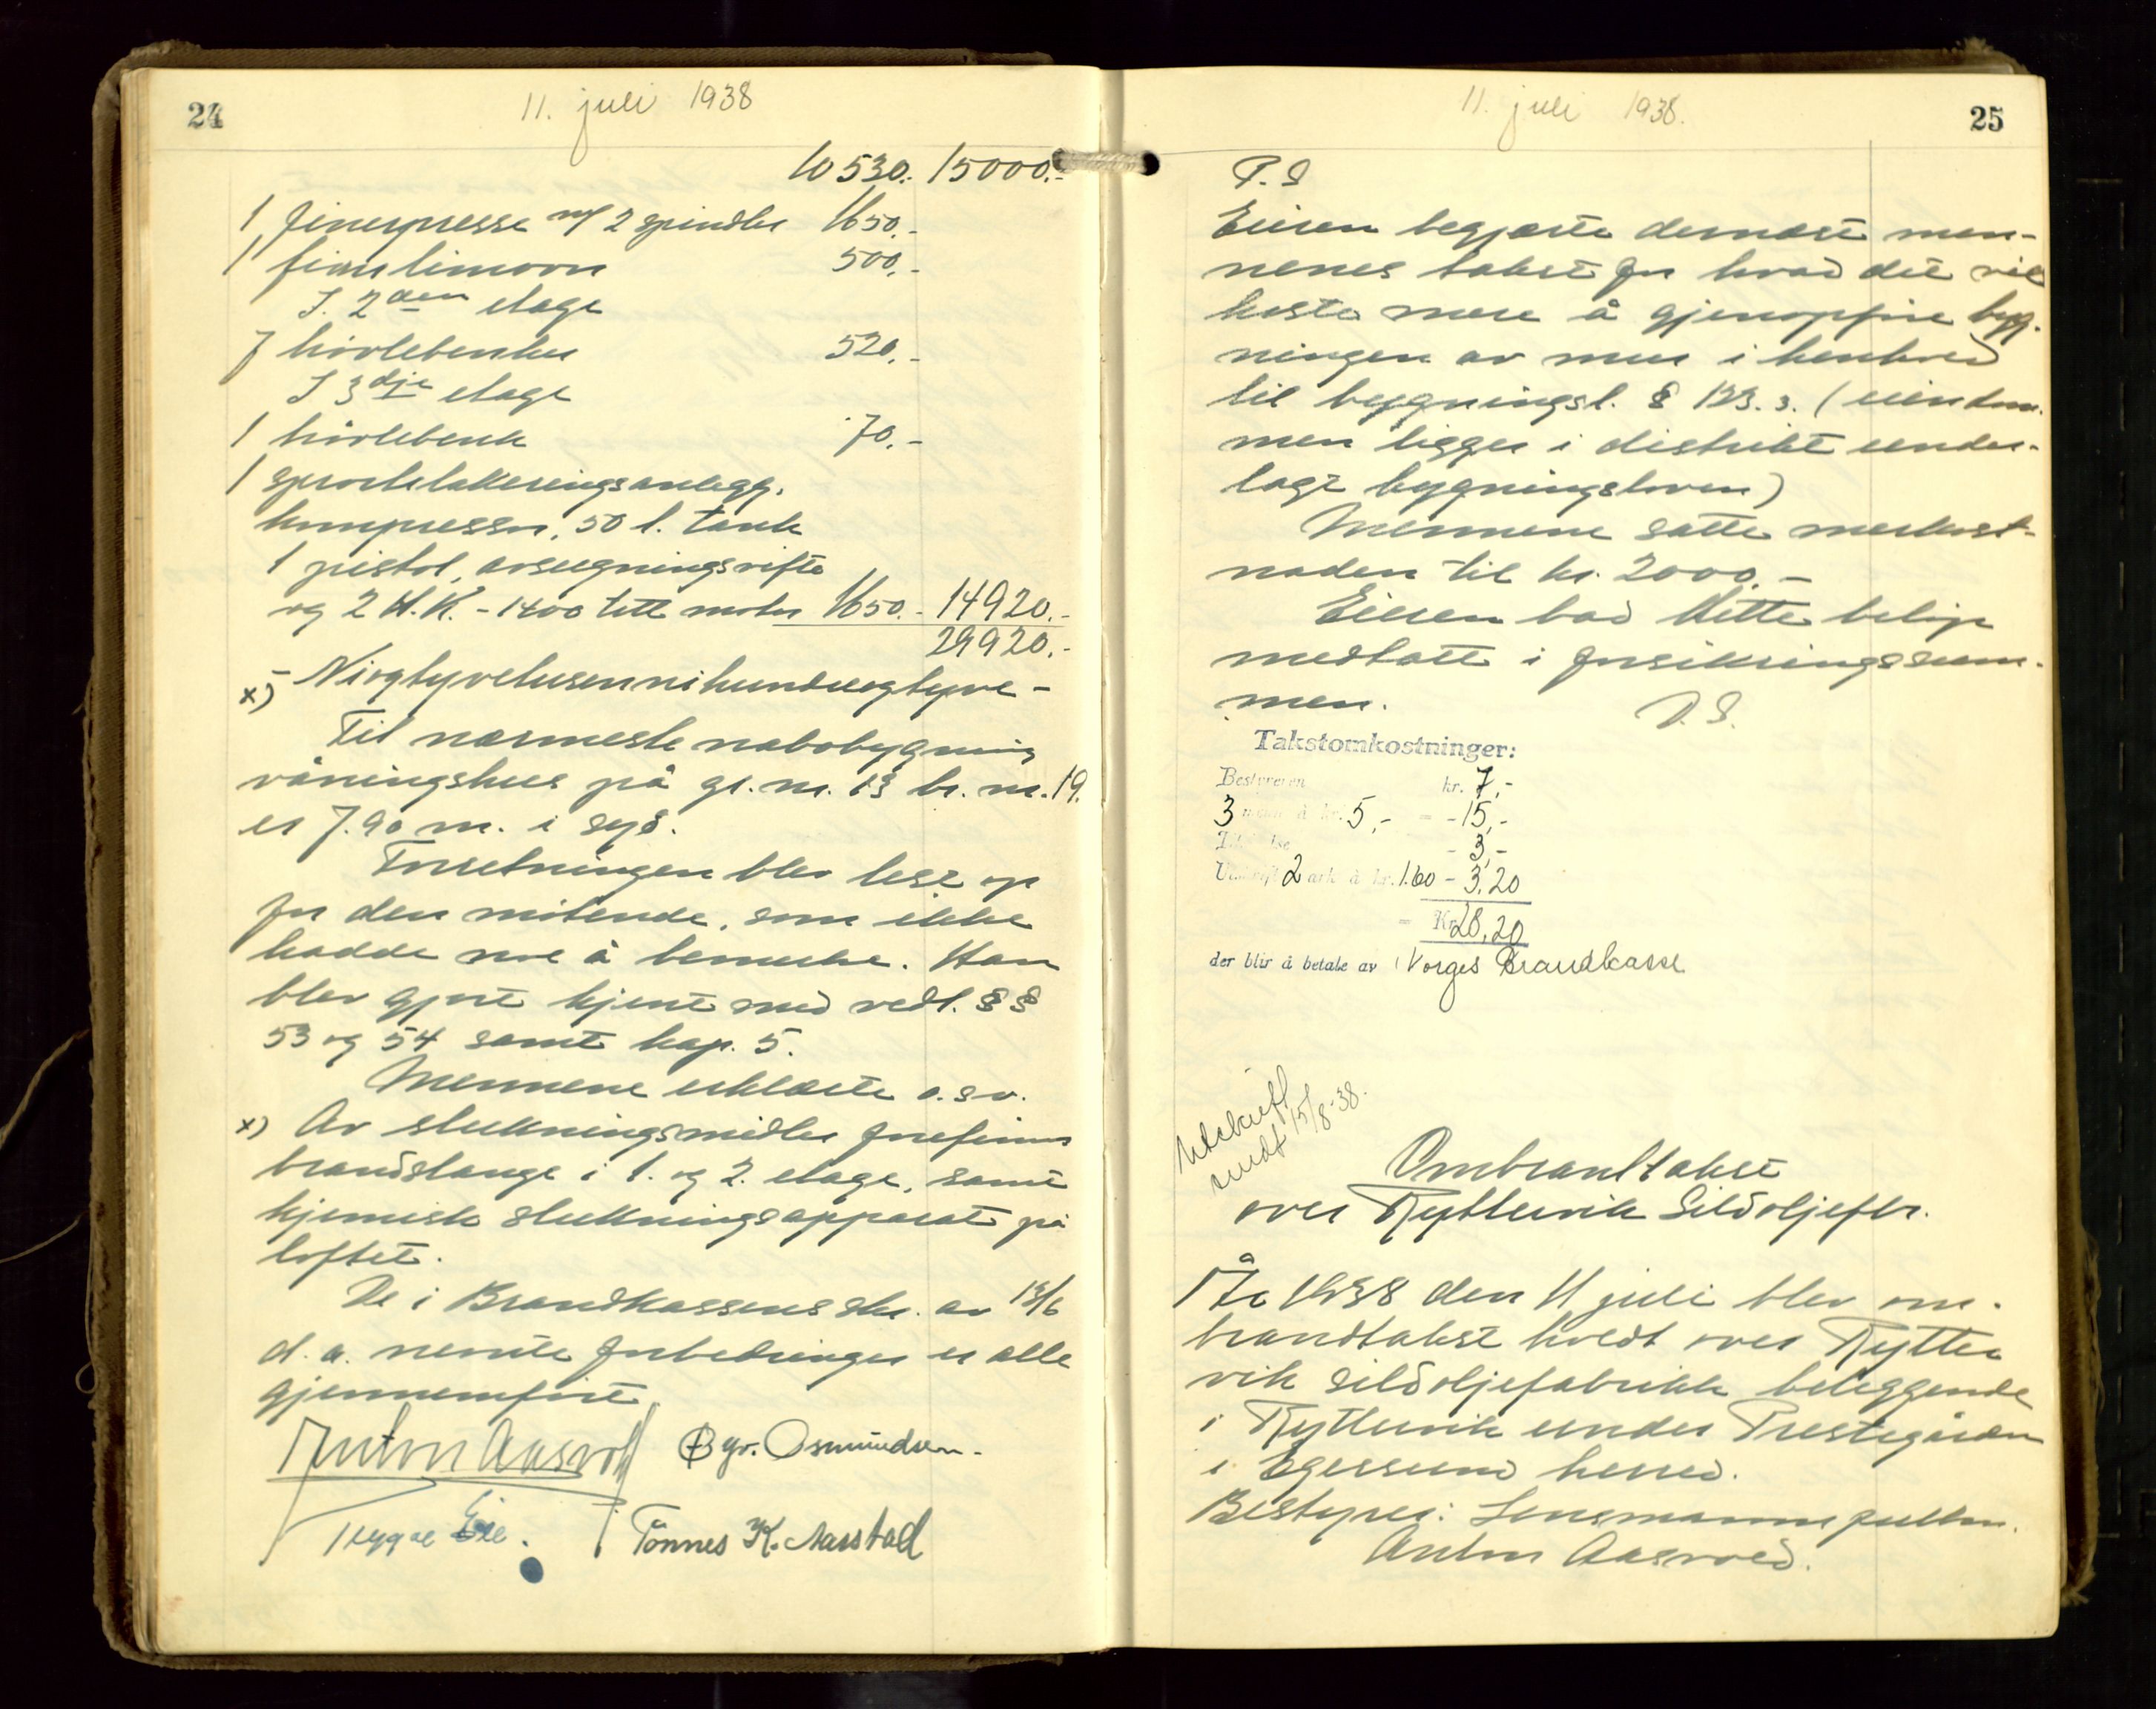 24
11. juli 1938
10530.- 15000.-
1 finerpresse m/ 2 spindler 1650.-
1 finerlimovn 500.-
I. 2den etage
7 hövlebenker 520.-
I 3dje etage
1 hövlebenk 70.-
1 sprøitelakkeringsanlegg,
kompressor, 50 l. tank
1 pistol, avsugningsvifte
og 2 H.K. - 1400 tett motor 1650.- 14920.-
29920.-
x) - Niogtyvetusennihundreogtyve -
Til nærmeste nabobygning
våningshus på gr. nr. 13 br. nr. 19.
er 7.90 m. i syd.
Forretningen blev lest op
for den møtende, som ikke
hadde noe å bemerke. Han
blev gjort kjent med vedt. § §
53 og 54 samt kap. 5.
Mennene erklærte o.s.v.
x) Av slukningsmidler forefinnes
brandslange i 1. og 2. etage, samt
kjemisk slukningsapparat på
loftet.
De i Brandkassens skr. av 13/6
d.a. nevnte forbedringer er alle
gjennemført
Anton Aasvold Bgv. Osmundsen.
Trygve Eie. Tönnes K. Aarstad
25
11. juli 1938.
P. S
Eieren begjærte dernæst men-
nenes takst for hvad det vil
koste mere å gjenopføre byg-
ningen av mur i henhold
til bygningsl. § 123.3. (eiendom-
men ligger i distrikt under-
lagt bygningsloven)
Mennene satte merkost-
naden til kr. 2000.-
Eieren bad dette beløp
medtatt i forsikringssum-
men.
D. S.
Takstomkostninger:
Bestyreren kr. 7,-
3 menn à kr. 5,- = - 15,-
- 3,-
Utskrift 2 ark à kr. 1.60 - 3,20
= Kr. 28,20
der blir å betale av Norges Brandkasse
Utskrift
sendt 15/8-38.
Ombrandtakst
over Ryttervik Sildoljefbr.
År 1938 den 11 juli blev om-
brandtakst holdt over Rytter
vik sildoljefabrikk beliggende
i Ryttervik under Prestegården
i Egersund herred.
Bestyrer: Lensmannsfullm.
Anton Aasvold.